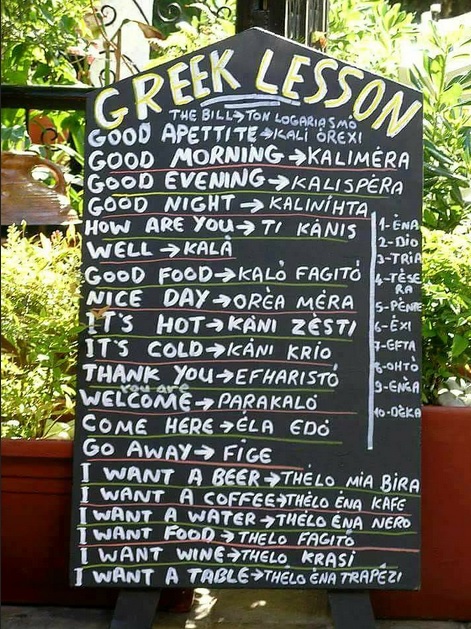 GREEK LESSON
THE BILL→TON LOGARIASMÓ
GOOD APETTITE→KALÍ ÓREXI
GOOD MORNING→KALIMÉRA
GOOD EVENING→KALISPÉRA
GOOD NIGHT→KALINÍHTA
HOW ARE YOU→TI KÁNIS
WELL→KALÁ
GOOD FOOD→KALÓ FAGITÓ
NICE DAY→ORÉA MÉRA
IT'S HOT→KÁNI ZÉSTI
IT'S COLD→KÁNI KRÍO
THANK YOU→EFHARISTÓ
you are
WELCOME→PARAKALÓ
COME HERE→ÉLA EDÓ
GO AWAY→FÍGE
I WANT A BEER→THÉLO MIA BÍRA
I WANT A COFFEE→THÉLO ÉNA KAFÉ
I WANT A WATER→THÉLO ÉNA NERÓ
I WANT FOOD→THELO FAGITÓ
I WANT WINE→THELO KRASÍ
I WANT A TABLE→THÉLO ÉNA TRAPÉZI
1-ÉNA
2-DÍO
3-TRÍA
4-TÉSE
RA
5-PÉNTE
6-ÉXI
7-EFTÁ
8-OHTÓ
9-ENÉA
10-DÉKA